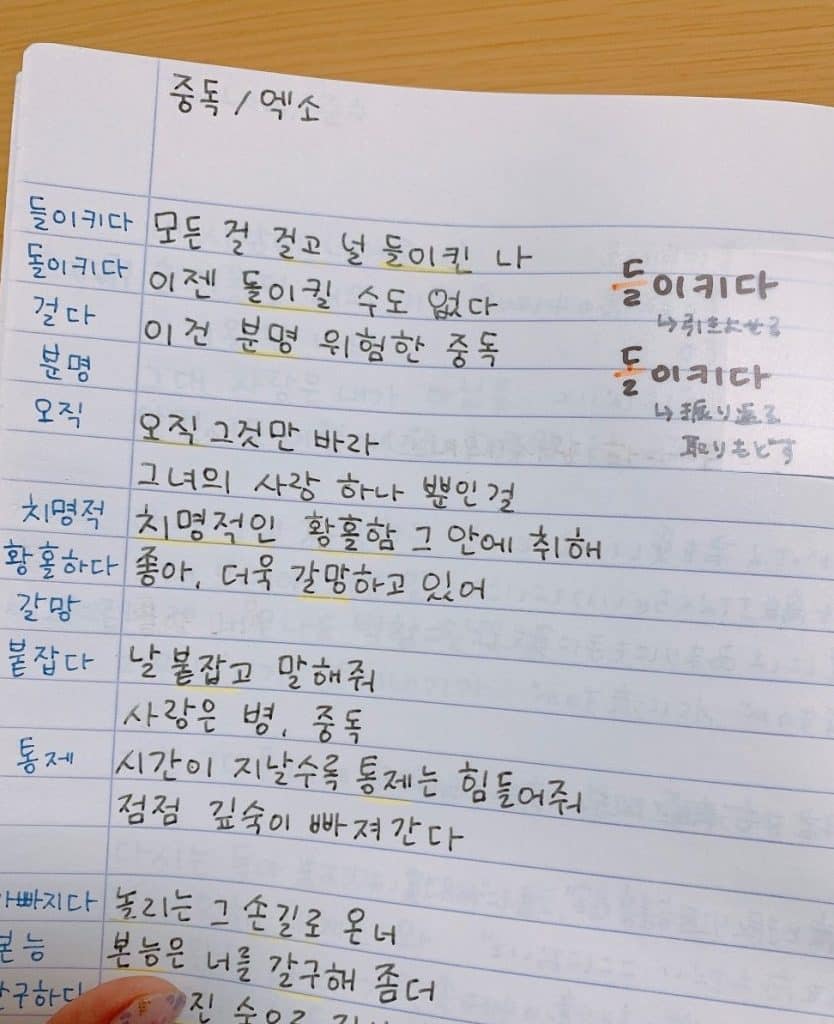 중독 / 엑소
들이키다
돌이키다
걸다
분명
오직
치명적
황홀하다
갈망
붙잡다
통제
가빠지다
본능
갈구하다
모든 걸 걸고 널 들이킨 나
이젠 돌이킬 수도 없다
이건 분명 위험한 중독
오직 그것만 바라
그녀의 사랑 하나 뿐인걸
치명적인 황홀함 그 안에 취해
좋아, 더욱 갈망하고 있어
날 붙잡고 말해줘
사랑은 병, 중독
시간이 지날수록 통제는 힘들어줘
점점 깊숙이 빠져간다
놀리는 그 손길로 온너
본능은 너를 갈구해 좀더
진 숨으로
들이키다
↳引きよせる
돌이키다
↳振り返る
取りもどす